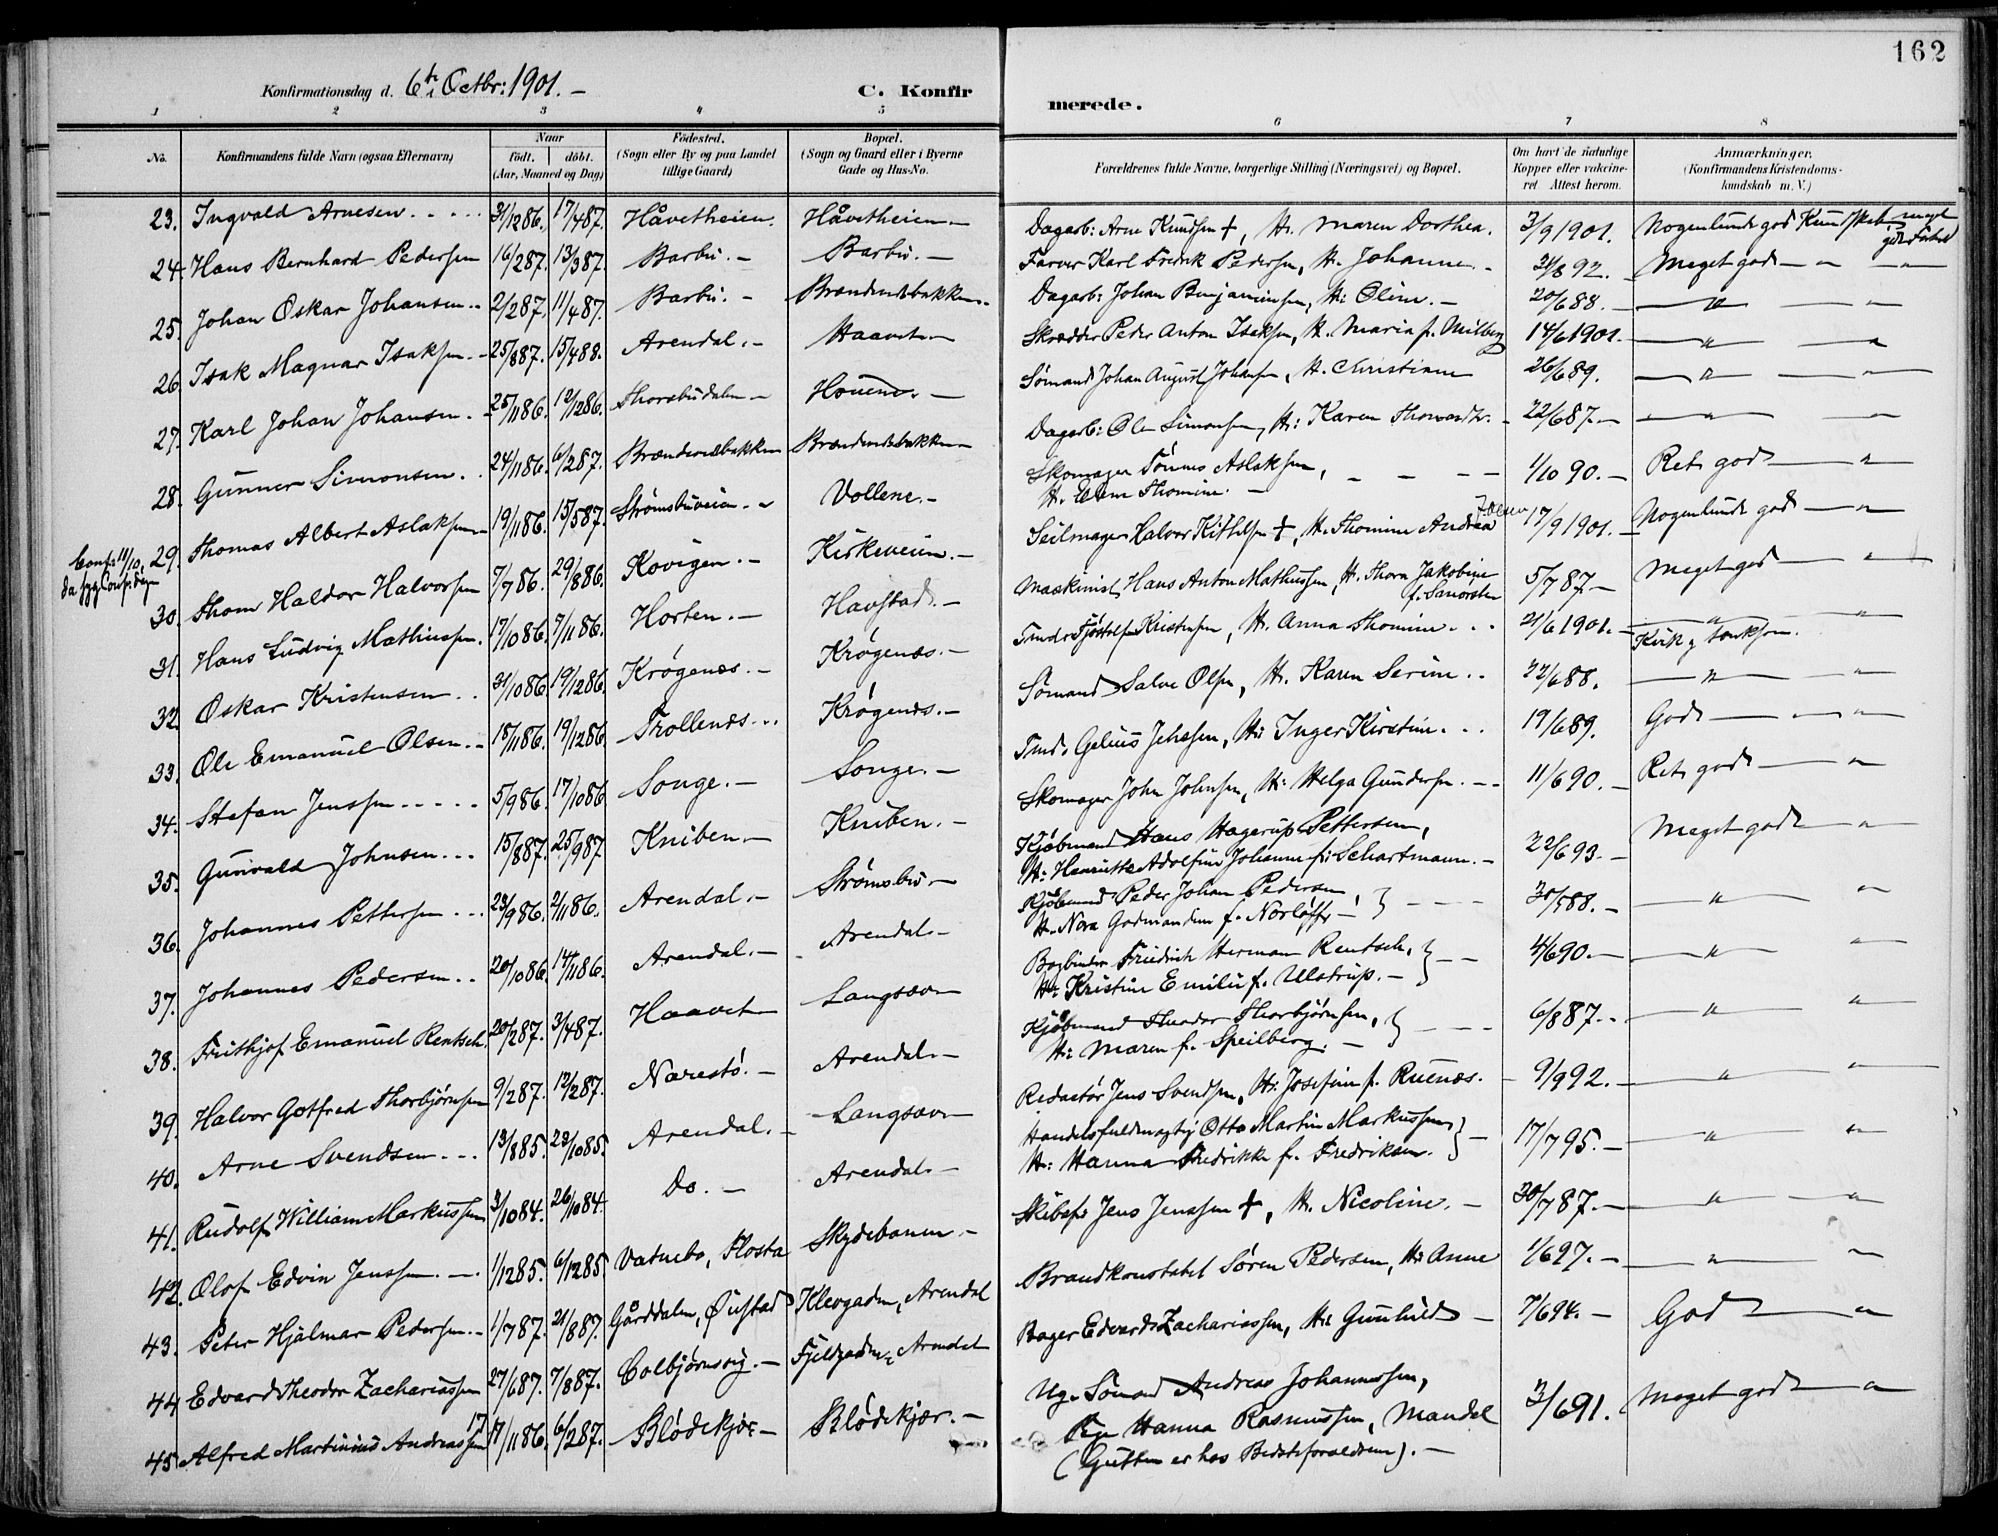 162
Konfirmationsdag d. 6te Octbr: 1901. –
C. Konfirmerede.
1 2 3 4 5 6 7 8
No.
Konfirmandens fulde Navn (ogsaa Efternavn)
Naar
født. døbt.
(Aar, Maaned og Dag)
Fødested.
(Sogn eller By og paa Landet
tillige Gaard)
Bopæl.
(Sogn og Gaard eller i Byerne
Gade og Hus-No.
Forældrenes fulde Navne, borgerlige Stilling (Næringsvei) og Bopæl.
Om havt de naturlige
Kopper eller vakcine-
ret. Attest herom.
Anmærkninger.
(Konfirmandens Kristendoms-
kundskab m. V.)
23. Ingvald Arnesen 31/12 86. 17/4 87. Håvetheien. Håvetheien – Dagarb: Arne Knudsen +, H. Maren Dorthea. 3/9 1901. Nogenlunde god Kundskab, meget god Forhold
24. Hans Bernhard Pedersen 16/2 87. 13/3 87. Barbu. – Barbu. – Farver Karl Fredrik Pedersen, H. Johanne – 31/8 92. – Meget god – " – "
25. Johan Oskar Johansen 2/2 87. 11/4 87. Barbu. – Brændendsbakken. Dagarb: Johan Benjaminsen, H: Oline. – 20/6 88. – " – "
26. Isak Magnar Isaksen 25/8 87. 15/4 88. Arendal. – Haavet – Skrædder Peder Anton Isaksen, H. Maria f. Milberg 14/6 1901. – " – "
27. Karl Johan Johansen 25/11 86. 12/12 86. Thorsbudalen – Houene. – Sømand Johan August Johansen, H. Christiane 26/6 89. – " – "
28. Gunner Simonsen 24/11 86. 6/2 87. Brændendsbakken Brændendsbakken Dagarb: Ole Simonsen, H: Karen Thorvardtr. 22/6 87. – " – "
29. Thomas Albert Aslaksen 19/11 86. 15/5 87. Strømsbuveien. – Vollene. – Skomager Tønnes Aslaksen,
H. Elene Thomine. – 1/10 90. – Ret god – "
Conf: 11/10,
da syg Conf. dagen
30. Thom Haldor Halvorsen 7/7 86. 29/8 86. Kovigen. – Kirkeveien. – Seilmager Halvor Kittelsen +, H. Thomine Andrea Jolsen 17/9 1901. Nogenlunde god – "
31. Hans Ludvig Mathiassen 17/10 86. 7/11 86. Horten. – Havstad. – Maskinist Hans Anton Mathiassen, H. Thora Jakobine
f. Sanørsten 5/7 87 – Meget god – "
32. Oskar Kristensen 31/10 86. 19/12 86. Krøgenæs. – Krøgenæs. – Tmdr Fjøstolf Kristensen, H. Anna Thomine. 21/6 1901. – " – "
33. Ole Emanuel Olsen 18/11 86. 19/12 86. Trollenæs. Krøgenæs. – Sømand Salve Olsen, H. Karen Serine 22/6 88. – " – "
34. Stefan Jenssen 5/9 86. 17/10 86. Songe. – Songe. – Tmd. Gelius Jenssen, H: Inger Kirstine. 19/6 89. God – "
35. Gunvald Johnsen 15/8 87. 25/9 87. Kniben. – Kniben. – Skomager John Johnsen, H: Helga Gundersen. 11/6 90. – Ret god – "
36. Johannes Pettersen 23/9 86. 2/11 86. Arendal. – Strømsbu – Kjøbmand Hans Hagerup Pettersen,
H: Henriette Adolfine Johanne f: Schartmann. – 22/6 93. – Meget god – "
37. Johannes Pedersen 20/10 86. 14/11 86. Arendal. – Arendal – Kjøbmand Peder Johan Pedersen,
H. Nora Godmandine f. Norløffs – 30/5 88. – " – "
38. Frithjof Emanuel Rentsch. 20/2 87. 3/4 87. Haavet Langsævn Bogbinder Friedrich Herman Rentsch,
H: Kristine Emilie f. Ulstrup. – 4/6 90. – " – "
39. Halvor Gotfred Thorbjørnsen 9/2 87. 12/2 87. Narestø. – Arendal. – Kjøbmand Theodor Thorbjørnsen,
H: Maren f. Speilberg. – 6/8 87. " – "
40. Arne Svendsen 13/8 85. 23/10 85. Arendal. – Langsævn Redactør Jens Svendsen, H: Josefine f. Ruenæs. – 9/9 92. – " – "
41. Rudolf William Markussen 3/10 84. 26/10 84. Do. – Arendal. – Handelsfuldmægtig Otto Martin Markussen
H: Hanna Fredrikke f. Fredriksen. – 17/7 95. – " – "
42. Olof Edvin Jenssen. – 1/12 85. 6/12 85. Vatnebo, Flosta Skydebanen – Skibsf. Jens Jenssen +, H. Nicoline. – 30/7 87. – " – "
43. Peter Hjalmar Pedersen. – 1/7 87. 21/8 87. Gårddalen, Øiestad Klevgaden, Arendal Brandkonstabel Søren Pedersen, H: Anne 1/6 97. – " – "
44. Edvard Theodor Zachariassen 27/6 87. 7/8 87. Colbjørnsvig. – Fjeldgaden, Arendal Bager Edvard Zachariassen, H: Gunhild – 7/6 94. – God – "
45. Alfred Martinius Andreassen 17/11 86. 6/2 87. Blødekjær – Blødekjær. – Ug. Sømand Andreas Johannessen,
Pge Hanna Rasmussen, Mandal
(Gutten er hos Bedsteforældrene). – 3/6 91. Meget god – "